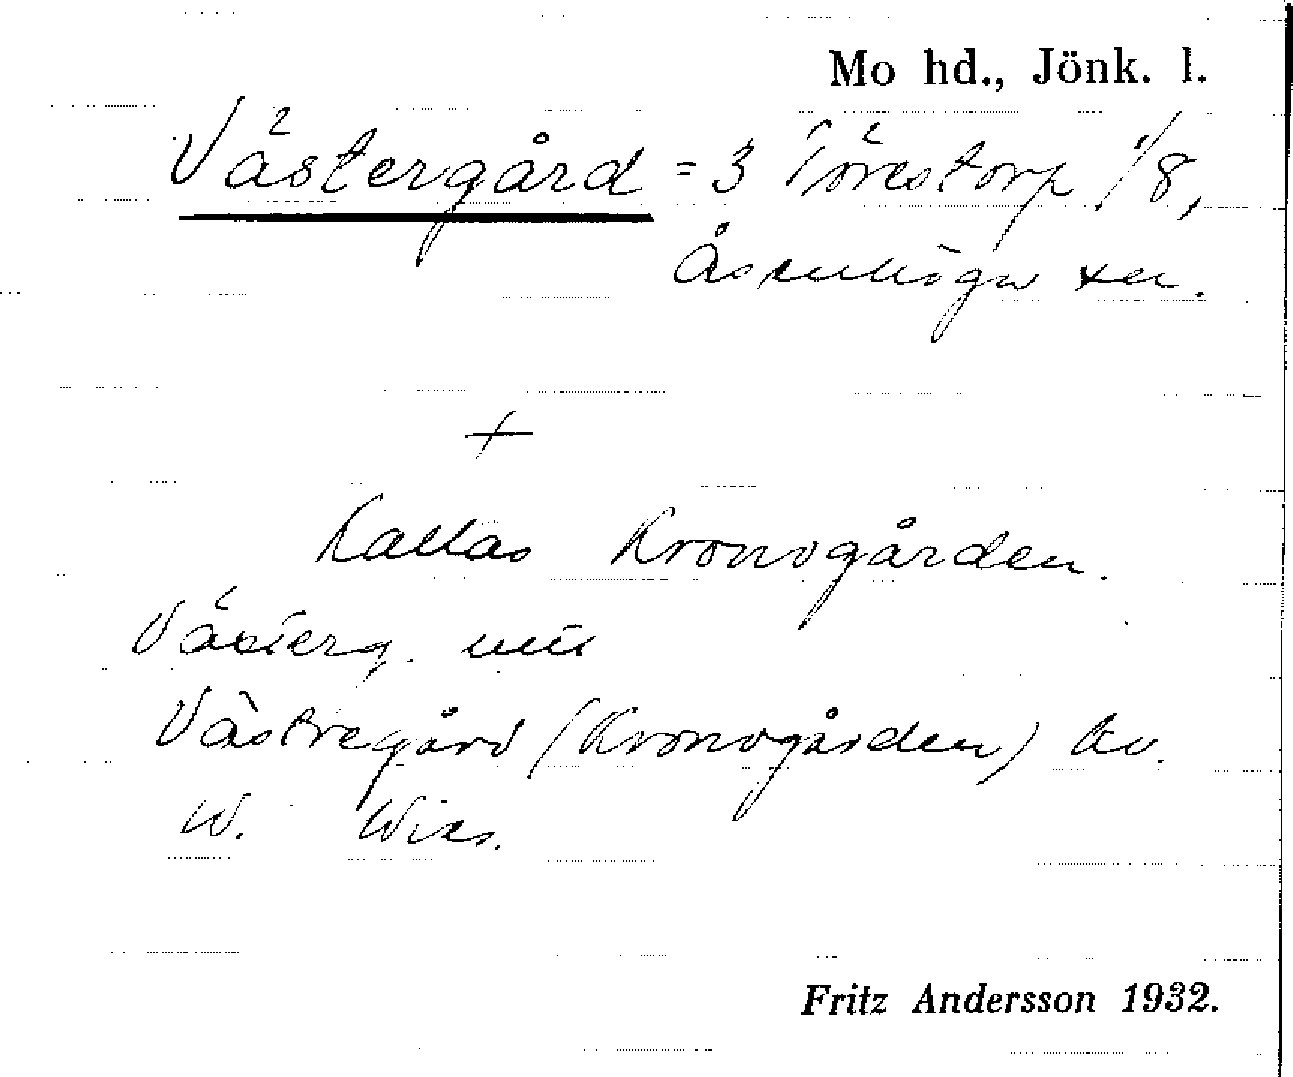 Mo hd., Jönk. l.
Västergård = 3 Törestorp 1/8,
Åsenhöga sn.
+
Kallas Kronogården.
Västerg. nu
Västregård (Kronogården) av.
W. Wies.
Fritz Andersson 1932.